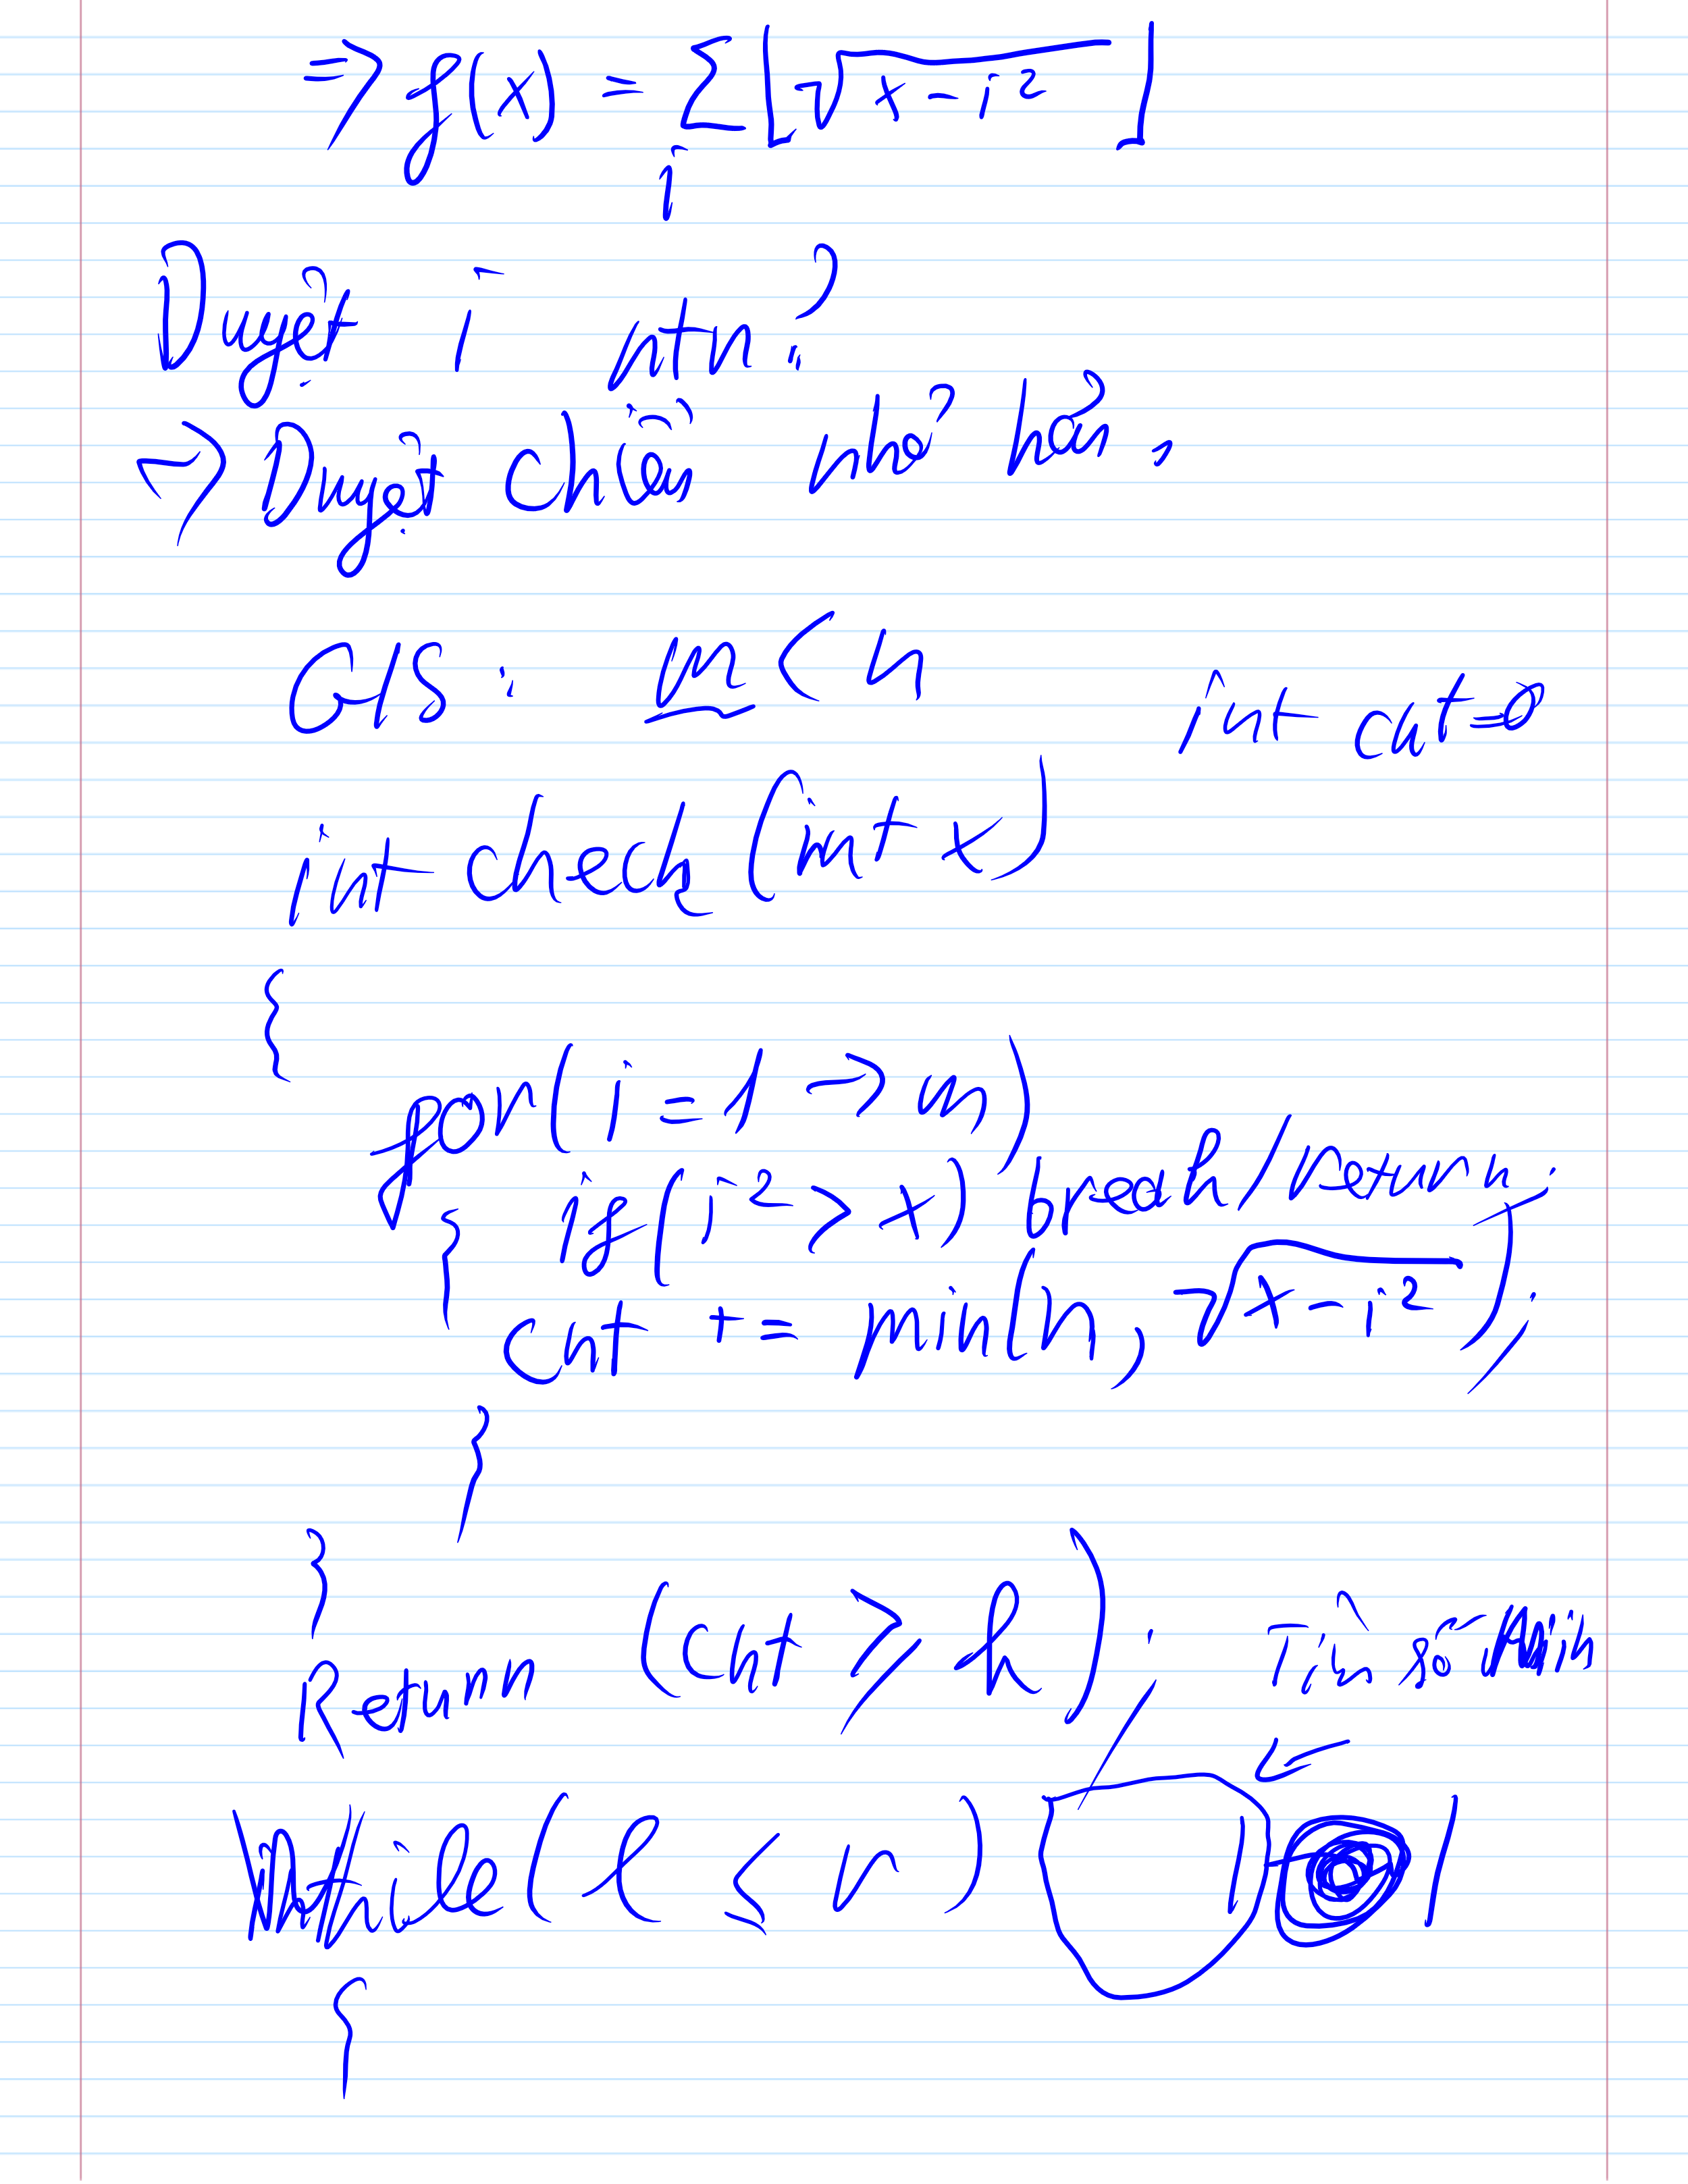 ⇒ f(x) = Σ ⌊√(x - i²)⌋
i
Duyệt i ntn?
⇒ Duyệt chiều nhỏ hơn.
G/S: m < n
int cnt=0
int check (int x)
{
for( i = 1 → m)
{ if( i² > x) break/return;
cnt += min(n, √(x - i²));
}
}
Return (cnt ≥ k);
Tìm số Min
While (l ≤ r)
{